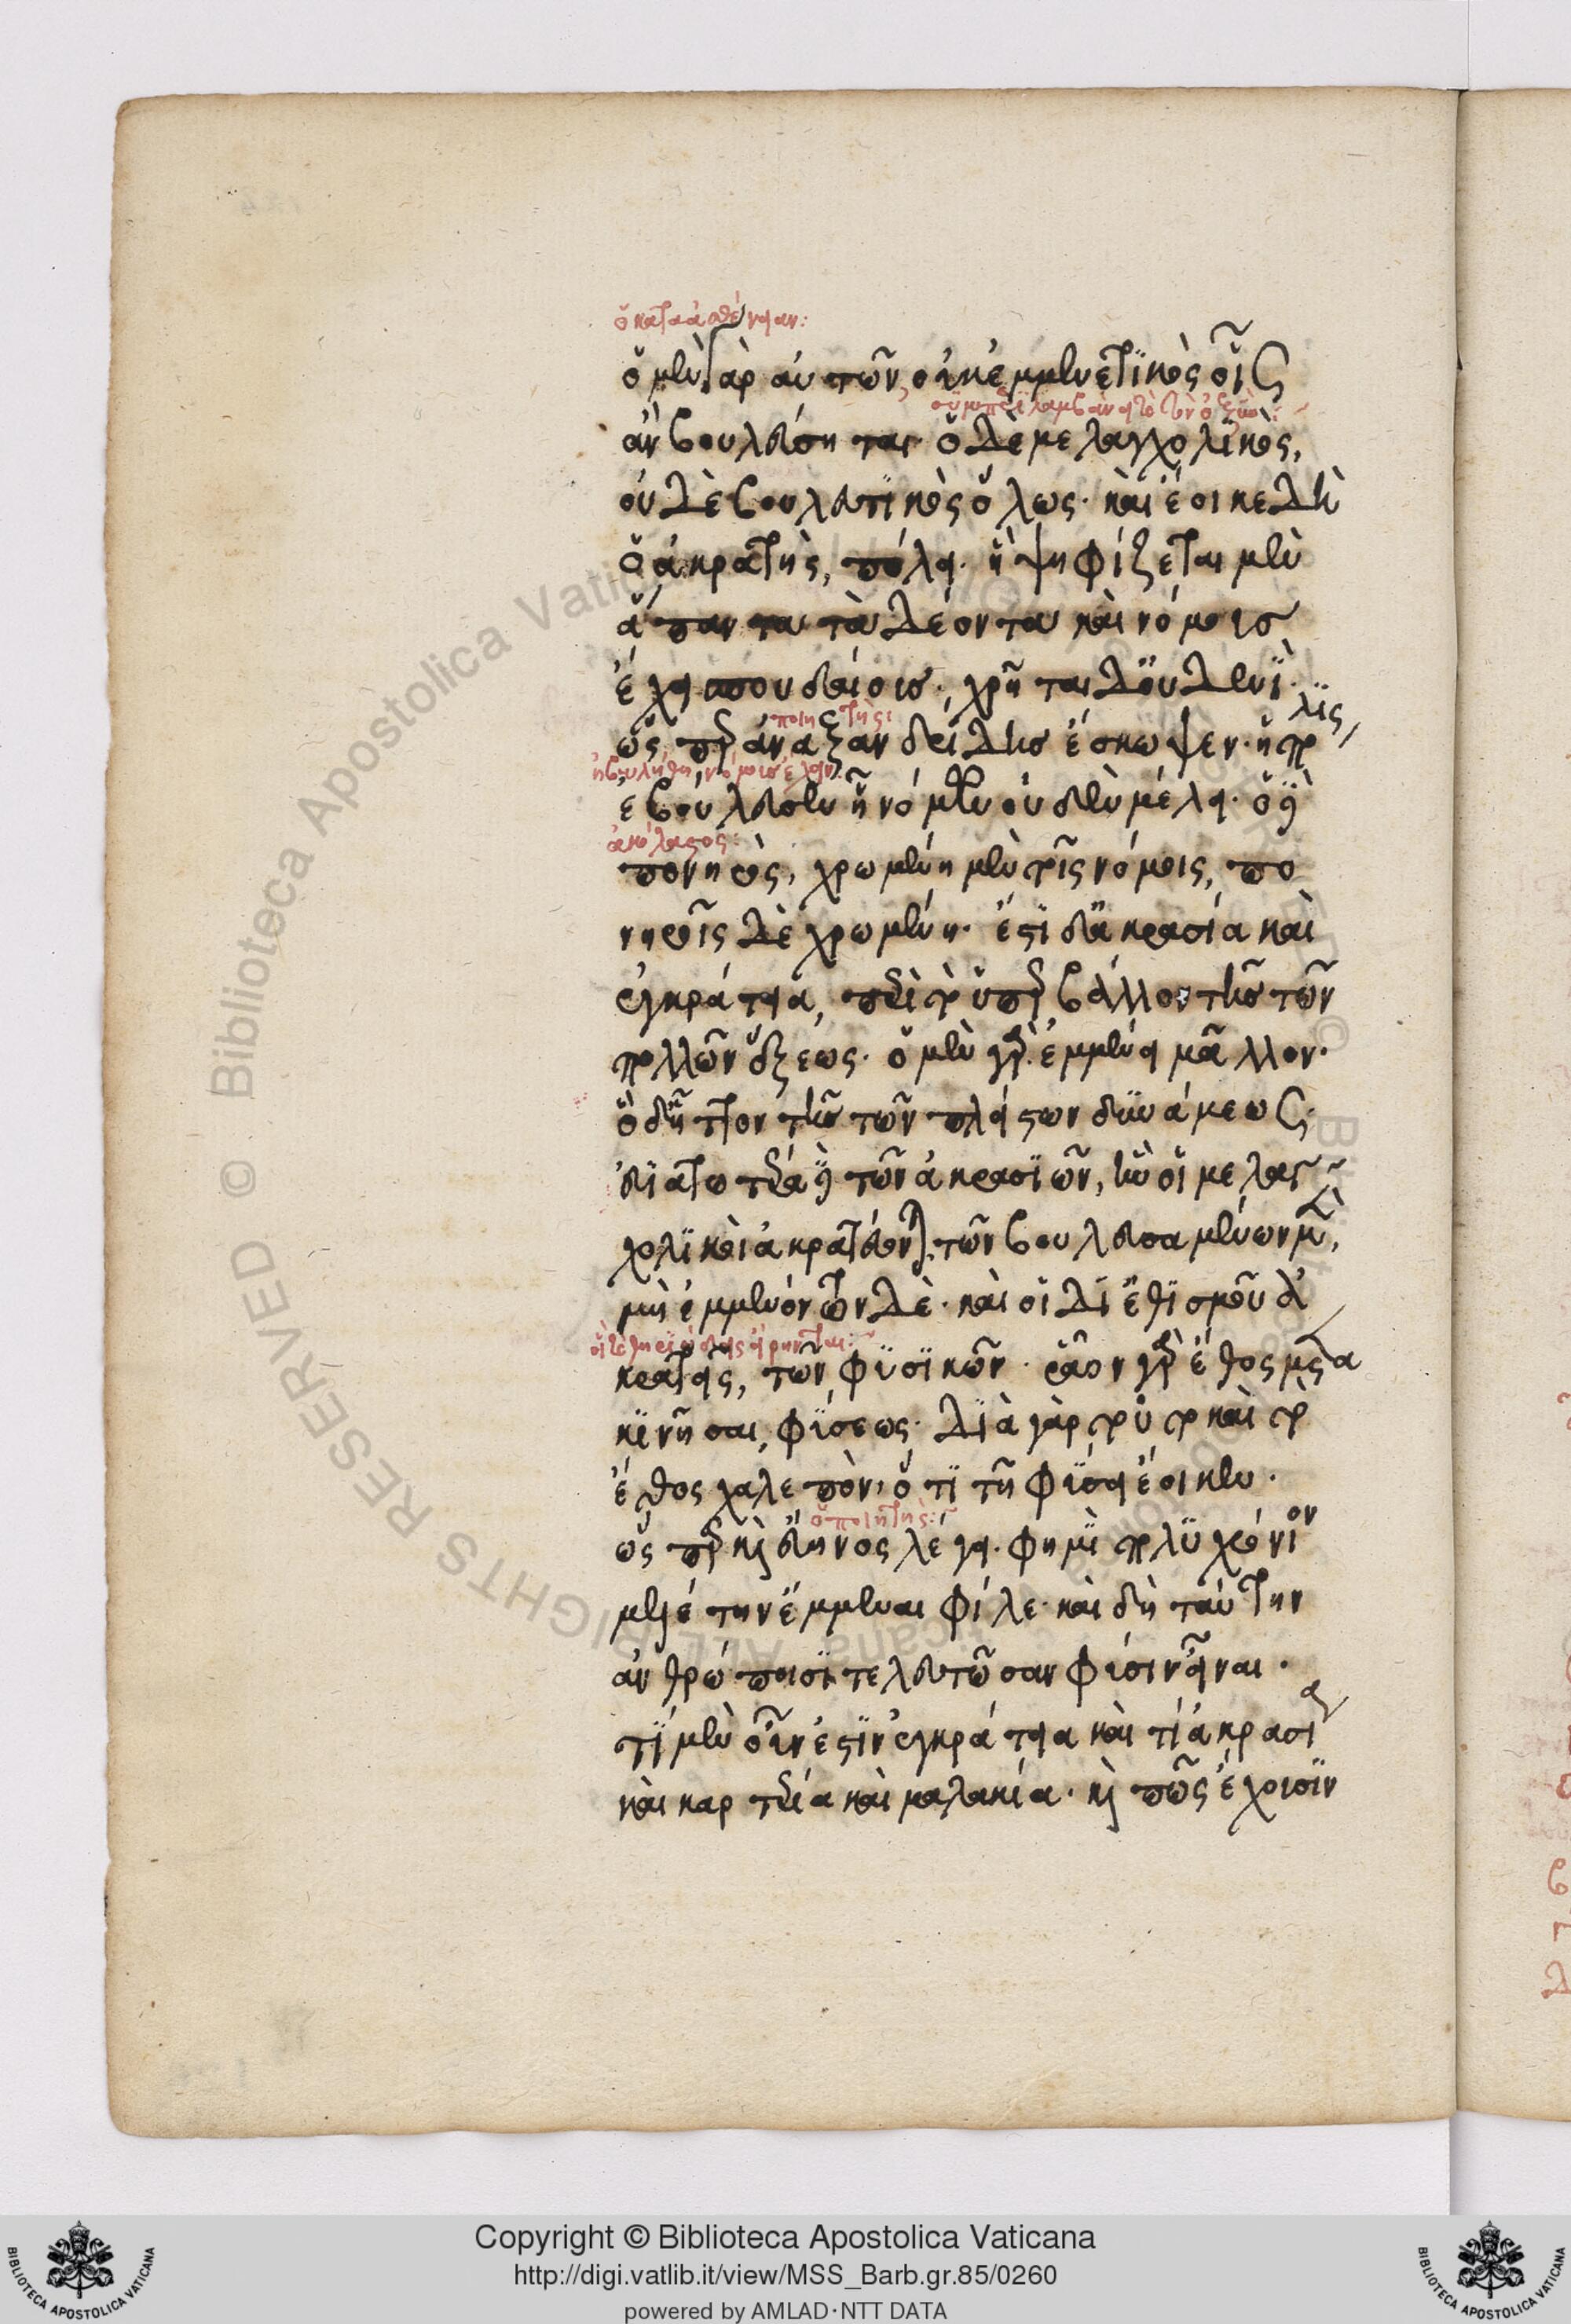 ὁ κατὰ ἀσθένειαν:
ὁ μὲν γὰρ αὐτῶν, οὐκ ἐμμενετικὸς οἷς
συμπεριλαμβάνει τὸ τὸν ὀξὺν:
ἂν βουλεύσηται· ὁ δὲ μελαγχολικὸς,
οὐδὲ βουλευτικὸς ὅλως· καὶ ἔοικε δὴ
ὁ ἀκρατὴς, πόλει· ἣ ψηφίζεται μὲν
ἅπαντα τὰ δέοντα καὶ νόμους
ἔχει σπουδαίους, χρῆται δὲ οὐδενί·
ποιητής:
ὥσπερ ἀναξανδρίδης ἔσκωψεν· ἡ πόλις
ἠβουλήθη, νόμους ἔχειν:
ἐβούλετο ᾗ νόμων οὐδὲν μέλει· ὁ δὲ
ἀκόλαστος:
πονηρὸς, χρωμένη μὲν τοῖς νόμοις, πο
νηροῖς δὲ χρωμένη· ἔστι δ' ἀκρασία καὶ
ἐγκράτεια, περὶ τὸ ὑπερβάλλον τῆς τῶν
πολλῶν ἕξεως· ὁ μὲν γὰρ ἐμμένει μᾶλλον·
ὁ δ' ἧττον τῆς τῶν πλείστων δυνάμεως·
εὐιατοτέρα δὲ τῶν ἀκρασιῶν, ἣν οἱ μελαγ
χολικοὶ ἀκρατεύονται, τῶν βουλευσαμένων μὲν,
μὴ ἐμμενόντων δὲ· καὶ οἱ δι' ἐθισμοῦ ἀ
κρατεῖς, τῶν φυσικῶν· ῥᾷον γὰρ ἔθος μετα
κινῆσαι, φύσεως· διὰ γὰρ τοῦτο καὶ τὸ
ἔθος χαλεπὸν, ὅτι τῇ φύσει ἔοικεν·
ὁ ποιητής:
ὥσπερ καὶ εὔηνος λέγει· φημὶ πολυχρόνιον
μελέτην ἔμμεναι φίλε· καὶ δὴ ταύτην
ἀνθρώποισι τελευτῶσαν φύσιν εἶναι·
τί μὲν οὖν ἐστὶν ἐγκράτεια καὶ τί ἀκρασία
καὶ καρτερία καὶ μαλακία· καὶ πῶς ἔχουσιν
Copyright © Biblioteca Apostolica Vaticana
http://digi.vatlib.it/view/MSS_Barb.gr.85/0260
powered by AMLAD·NTT DATA